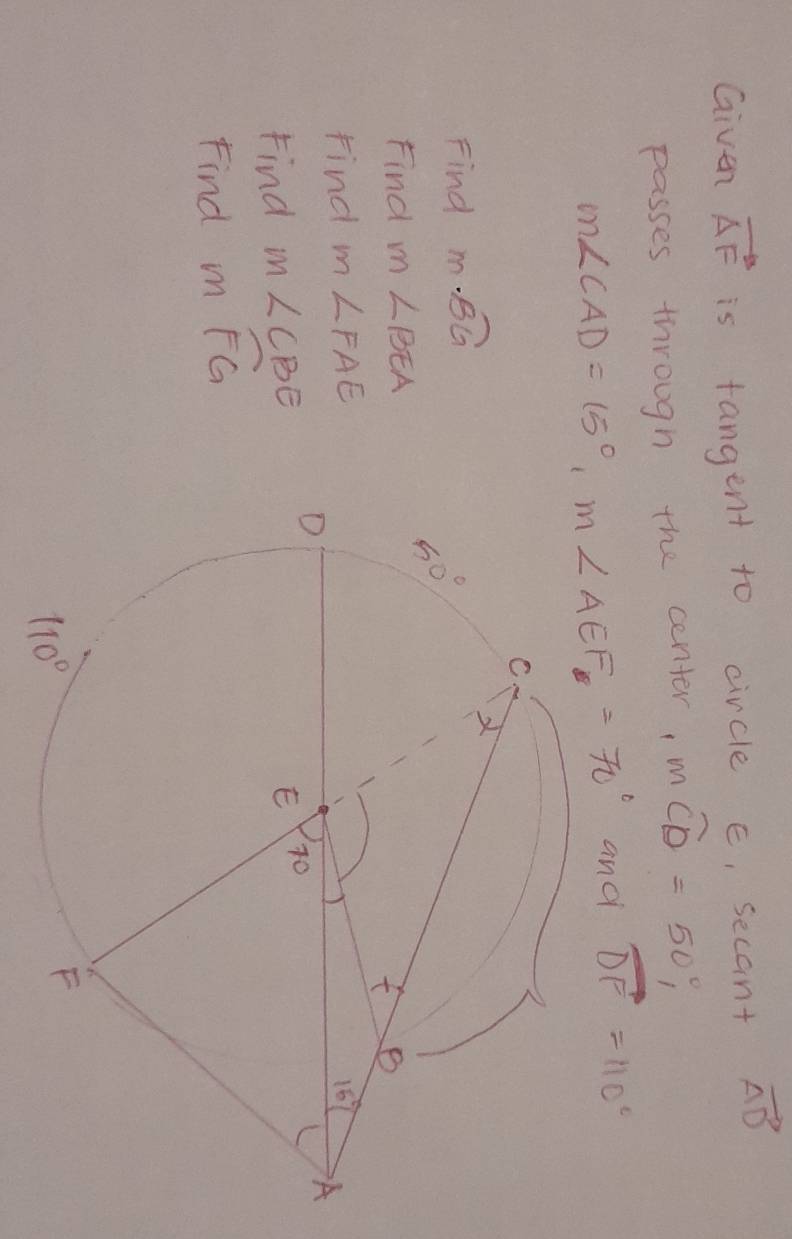 Given AF is tangent to circle E, secant AD
passes through the center, m CD = 50°,
m∠CAD = 15°, m∠AEF = 70° and DF = 110°
Find m BG
Find m∠BEA
Find m∠FAE
Find m∠CBE
Find m FG
50°
C
D
E
70
t
B
15°
A
F
110°